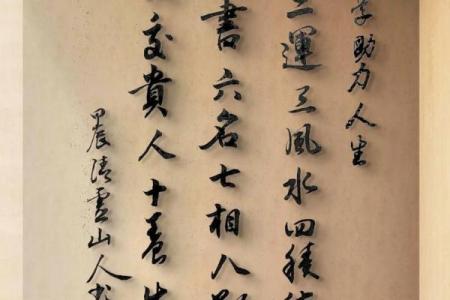 助力人生
二運三風水四積
書六名七相八
交貴人十養生
甲辰清雲山人书